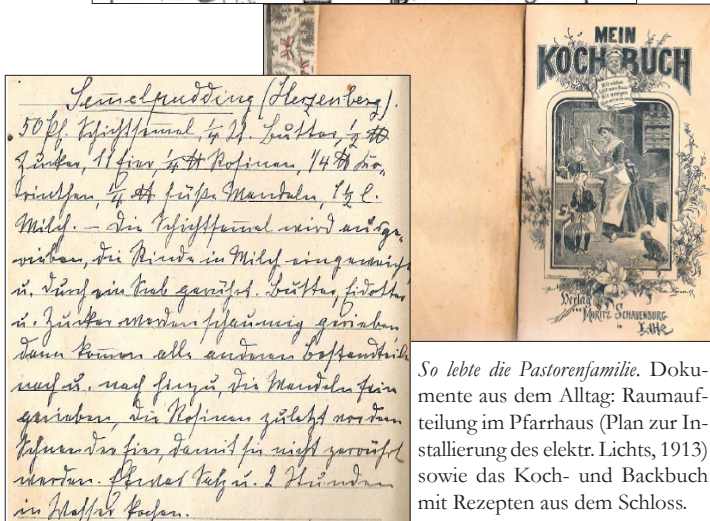 Semmelpudding (Herzenberg).
50 Pf. Schichtsemmel, 1/4 ℔. Butter, 1/2 ℔
Zucker, 11 Eier, 1/4 ℔ Rosinen, 1/4 ℔ Ko-
rinthen, 1/4 ℔ süße Mandeln, 1 1/2 l.
Milch. – Die Schichtsemmel wird ausge-
rieben, die Rinde in Milch eingeweicht
u. durch ein Sieb gerührt. Butter, Eidotter
u. Zucker werden schaumig gerieben
dann kommen alle anderen Bestandteile
nach u. nach hinzu, die Mandeln fein
gerieben, die Rosinen zuletzt vor dem
Schnee der Eier, damit sie nicht zerrührt
werden. Etwas Salz u. 2 Stunden
in Wasser kochen.
MEIN
KOCHBUCH
Verlag
von
MORITZ SCHAUENBURG
in
LAHR
So lebte die Pastorenfamilie. Doku-
mente aus dem Alltag: Raumauf-
teilung im Pfarrhaus (Plan zur In-
stallierung des elektr. Lichts, 1913)
sowie das Koch- und Backbuch
mit Rezepten aus dem Schloss.